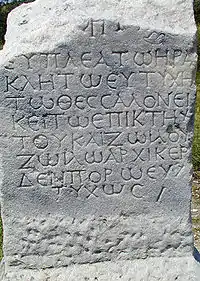 Π
ΕΥΠΛΕΑΤΩΗΡΑ
ΚΛΗΤΩΕΥΤΥΧΗ
ΤΩΘΕΣΣΑΛΟΝΕΙ
ΚΕΙΤΩΕΠΙΚΤΗ
ΤΟΥΚΑΙΖΩΙΛΟΥ
ΖΩΙΛΩΑΡΧΙΚΕΡ
ΔΕΜΠΟΡΩΕΥ
ΤΥΧΩϹ